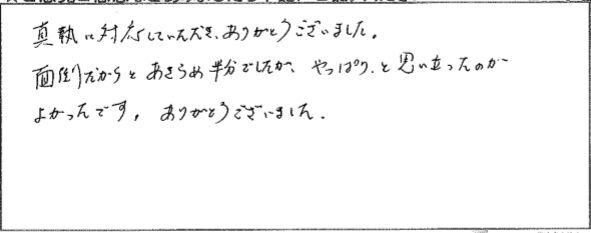 真執に対応していただき、ありがとうございました。
面倒だからとあきらめ半分でしたが、やっぱり、と思い立ったのが
よかったです。ありがとうございました。